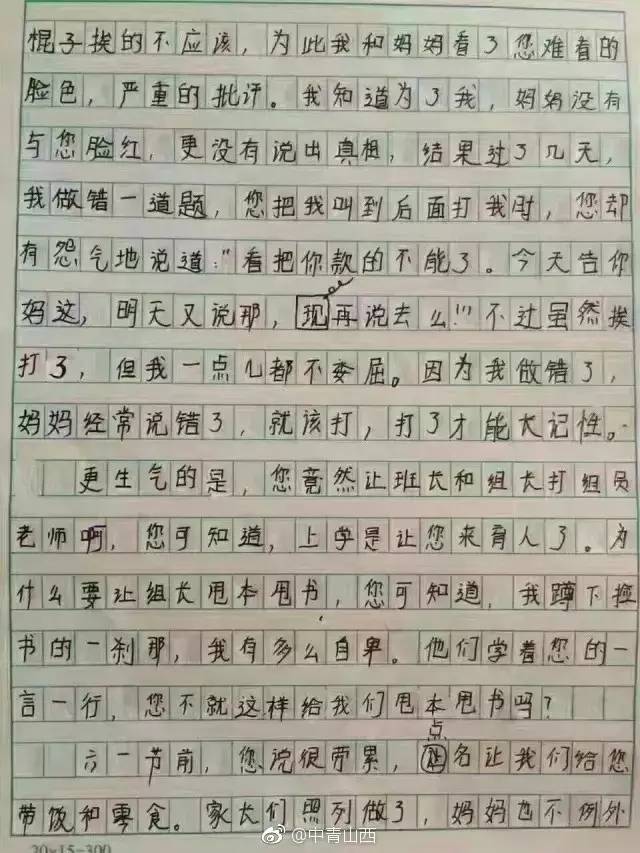 棍子挨的不应该，为此我和妈妈看了您难看的
脸色，严重的批评。我知道为了我，妈妈没有
与您脸红，更没有说出真相，结果过了几天，
我做错一道题，您把我叫到后面打我时，您却
有怨气地说道："看把你款的不能了。今天告你
妈这，明天又说那，现再说去么!!"不过虽然挨
打了，但我一点儿都不委屈。因为我做错了，
妈妈经常说错了，就该打，打了才能长记性。
更生气的是，您竟然让班长和组长打组员
老师啊，您可知道，上学是让您来育人了。为
什么要让组长甩本甩书，您可知道，我蹲下捡
书的一刹那，我有多么自卑。他们学着您的一
言一行，您不就这样给我们甩本甩书吗？
点
六一节前，您说很劳累，名让我们给您
带饭和零食。家长们照列做了，妈妈也不例外
@中青山西
20×15=300